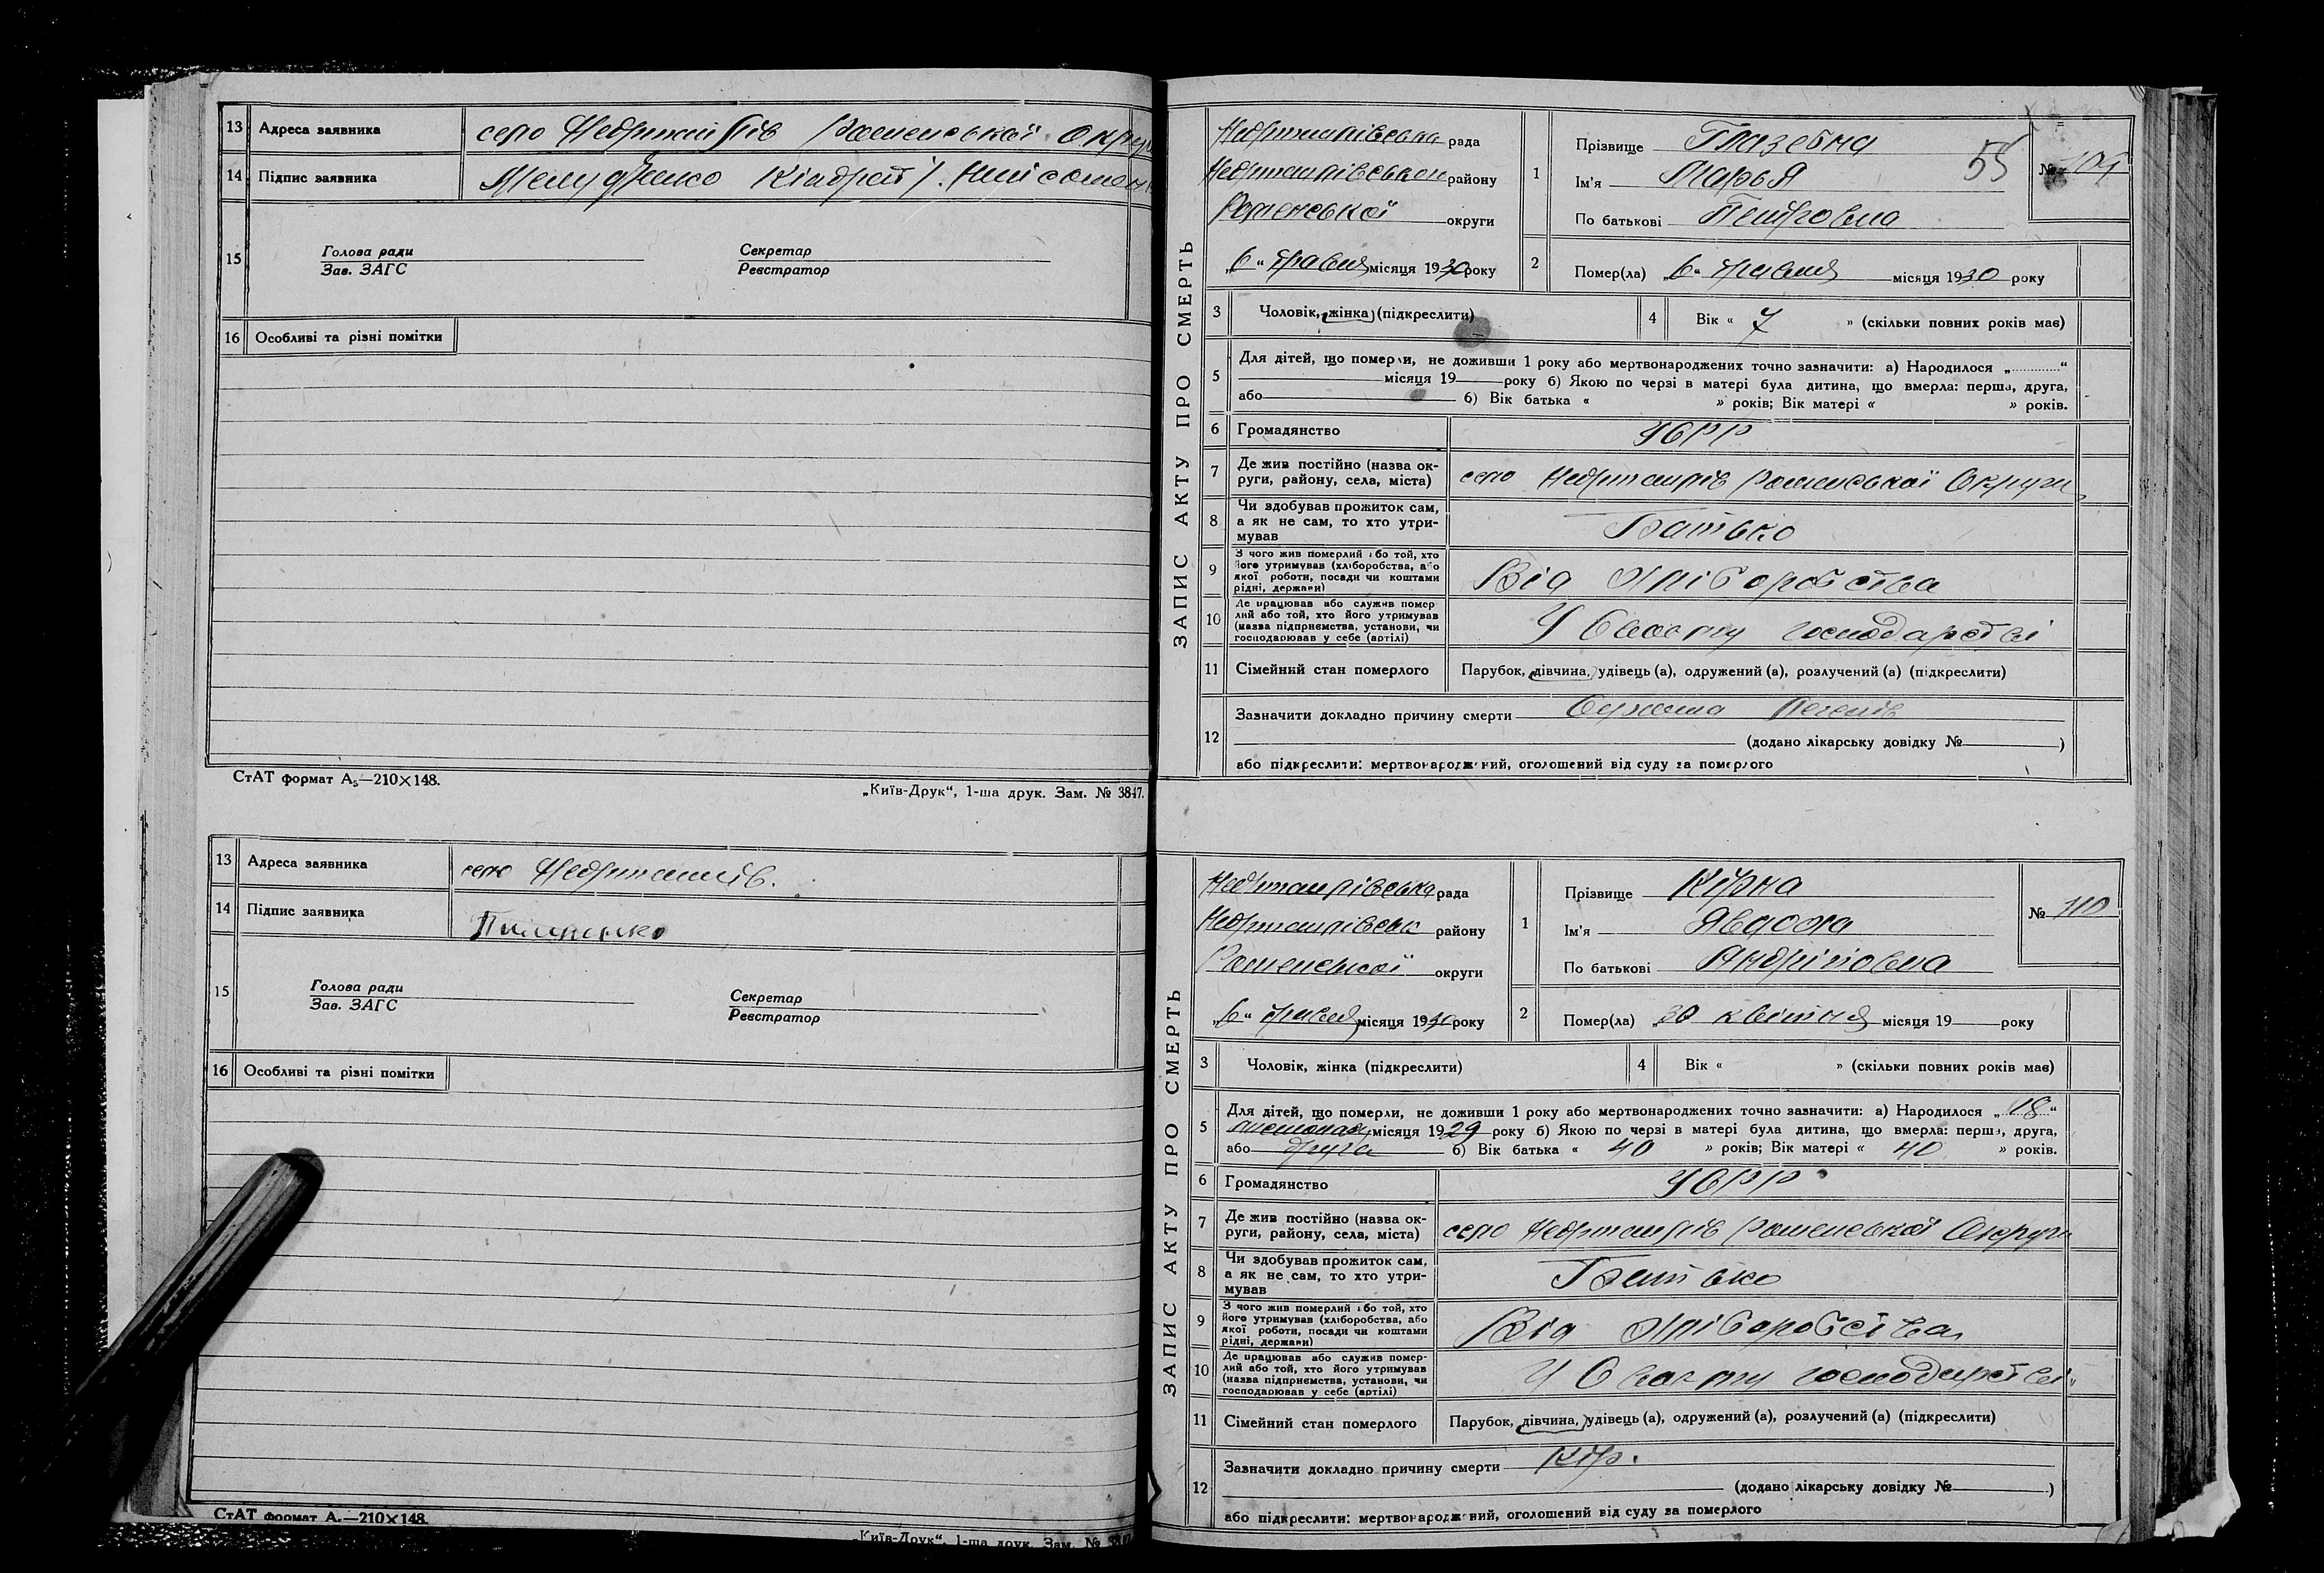 13 Адреса заявника село Недригайлів Роменської Округи
14 Підпис заявника
15 Голова ради Секретар
Зав. ЗАГС Реєстратор
16 Особливі та різні помітки
СтАТ формат А₅—210×148.
„Київ-Друк“, 1-ша друк. Зам. № 3847.
13 Адреса заявника село Недригайлів.
14 Підпис заявника
15 Голова ради Секретар
Зав. ЗАГС Реєстратор
16 Особливі та різні помітки
СтАТ формат А₅—210×148.
„Київ-Друк“, 1-ша друк. Зам. №
ЗАПИС АКТУ ПРО СМЕРТЬ
Недригайлівська рада
Недригайлівського району
Роменської округи
„6“ травня місяця 1930 року
1 Прізвище
Ім'я Марья
По батькові Петровна
55
№ 109
2 Помер(ла) „6“ травня місяця 1930 року
3 Чоловік, жінка (підкреслити)
4 Вік « 7 » (скільки повних років має)
5 Для дітей, що померли, не доживши 1 року або мертвонароджених точно зазначити: а) Народилося „ “
місяця 19 року б) Якою по черзі в матері була дитина, що вмерла: перша, друга,
або б) Вік батька « » років; Вік матері « » років.
6 Громадянство УСРР
7 Де жив постійно (назва округи, району, села, міста) село Недригайлів Роменської Округи
8 Чи здобував прожиток сам, а як не сам, то хто утримував Батько
9 З чого жив померлий або той, хто його утримував (хліборобства, або якої роботи, посади чи коштами рідні, держави) Від хліборобства
10 Де працював або служив помер лий або той, хто його утримував (назва підприємства, установи, чи господарював у себе (артілі) У Своєму господарстві
11 Сімейний стан померлого Парубок, дівчина, удівець (а), одружений (а), розлучений (а) (підкреслити)
12 Зазначити докладно причину смерти
(додано лікарську довідку № )
або підкреслити: мертвонароджений, оголошений від суду за померлого
ЗАПИС АКТУ ПРО СМЕРТЬ
Недригайлівська рада
Недригайлівськ району
Роменської округи
„6“ травня місяця 1930 року
1 Прізвище Кірна
Ім'я Явдоха
По батькові Андріївна
№ 110
2 Помер(ла) „30 квітня місяця 19 року
3 Чоловік, жінка (підкреслити)
4 Вік « » (скільки повних років має)
5 Для дітей, що померли, не доживши 1 року або мертвонароджених точно зазначити: а) Народилося „18“
листопада місяця 1929 року б) Якою по черзі в матері була дитина, що вмерла: перша, друга,
або друга б) Вік батька « 40 » років; Вік матері « 40 » років.
6 Громадянство УСРР
7 Де жив постійно (назва округи, району, села, міста) село Недригайлів Роменської Округи
8 Чи здобував прожиток сам, а як не сам, то хто утримував Батько
9 З чого жив померлий або той, хто його утримував (хліборобства, або якої роботи, посади чи коштами рідні, держави) Від хліборобства
10 Де працював або служив померлий або той, хто його утримував (назва підприємства, установи, чи господарював у себе (артілі) У Своєму господарстві
11 Сімейний стан померлого Парубок, дівчина, удівець (а), одружений (а), розлучений (а) (підкреслити)
12 Зазначити докладно причину смерти Кір.
(додано лікарську довідку № )
або підкреслити: мертвонароджений, оголошений від суду за померлого